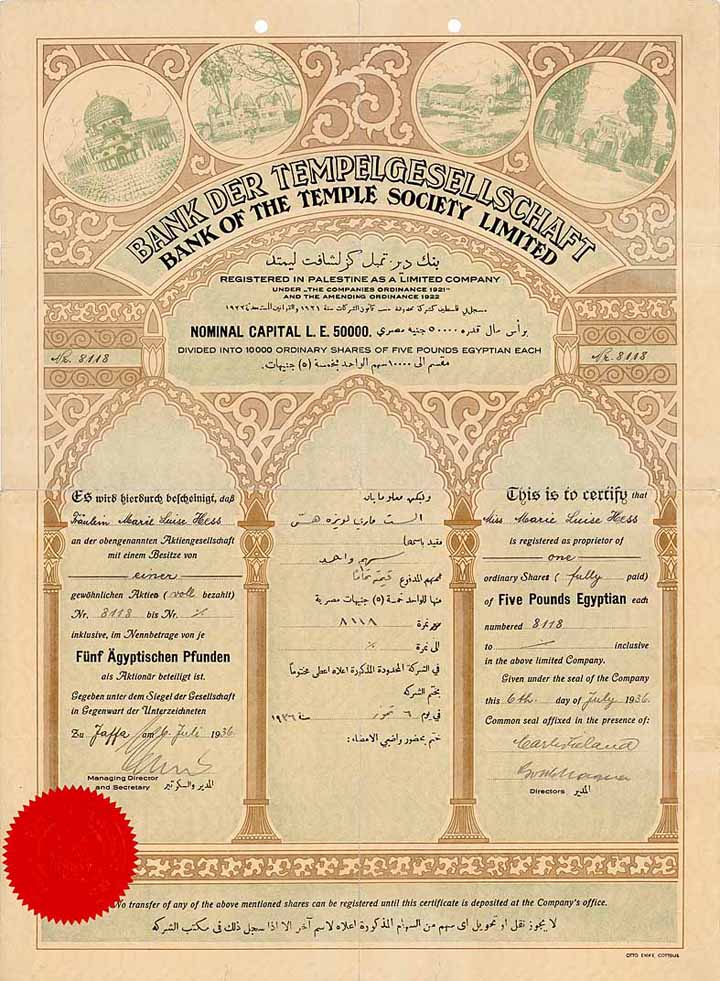 BANK DER TEMPELGESELLSCHAFT
BANK OF THE TEMPLE SOCIETY LIMITED
بنك دير تمبل كزلشافت ليمتد
REGISTERED IN PALESTINE AS A LIMITED COMPANY
UNDER „THE COMPANIES ORDINANCE 1921"
AND THE AMENDING ORDINANCE 1922
مسجل في فلسطين كشركة محدودة حسب قانون الشركات سنة ١٩٢١ والقوانين المتممة له ١٩٢٢
NOMINAL CAPITAL L. E. 50000. برأس مال قدره ٥٠٠٠٠ جنيه مصري
DIVIDED INTO 10000 ORDINARY SHARES OF FIVE POUNDS EGYPTIAN EACH
مقسم الى ١٠٠٠٠ سهم الواحد بخمسة (٥) جنيهات.
Nr. 8118
Nr. 8118
Es wird hierdurch bescheinigt, daß
Fräulein Marie Luise Hess
an der obengenannten Aktiengesellschaft
mit einem Besitze von
einer
gewöhnlichen Aktien (voll bezahlt)
Nr. 8118 bis Nr. %
inklusive, im Nennbetrage von je
Fünf Ägyptischen Pfunden
als Aktionär beteiligt ist.
Gegeben unter dem Siegel der Gesellschaft
in Gegenwart der Unterzeichneten
Zu Jaffa am 6. Juli 1936.
Managing Director
and Secretary المدير والسكرتير
وليكن معلوما بان
الست ماري لويزه هس
مقيد باسمها
سهم واحد
قيمة تماما
منها للواحد خمسة (٥) جنيهات مصرية
نمرة ٨١١٨
الى نمرة %
في الشركة المحدودة المذكورة اعلاه اعطى مختوماً
بختم الشركة
في يوم ٦ تموز سنة ١٩٣٦
ختم بحضور واضعي الامضاء:
This is to certify that
Miss Marie Luise Hess
is registered as proprietor of
one
ordinary Shares (fully paid)
of Five Pounds Egyptian each
numbered 8118
to — inclusive
in the above limited Company.
Given under the seal of the Company
this 6th. day of July 1936.
Common seal affixed in the presence of:
Directors المدير
No transfer of any of the above mentioned shares can be registered until this certificate is deposited at the Company's office.
لا يجوز نقل او تحويل اى سهم من السهام المذكورة اعلاه لاسم آخر الا اذا سجل ذلك فى مكتب الشركة
OTTO ENKE, COTTBUS